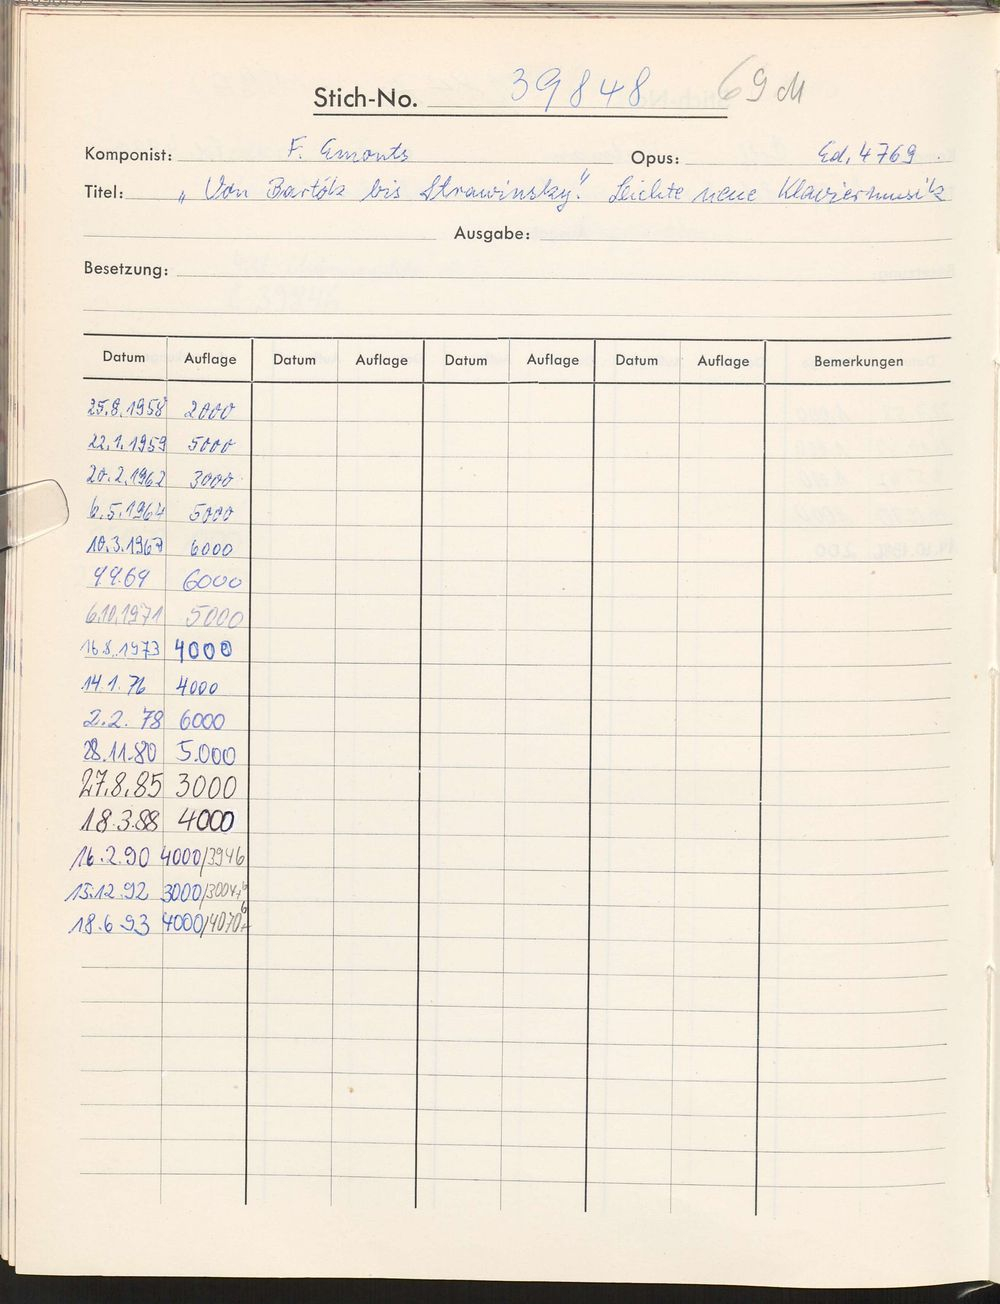 Stich-No. 39848 69 M
Komponist: F. Emonts Opus: Ed. 4769
Titel: „Von Bartók bis Strawinsky" Leichte neue Klaviermusik
Ausgabe:
Besetzung:
Datum Auflage Datum Auflage Datum Auflage Datum Auflage Bemerkungen
25.8.1958 2000
22.1.1959 5000
20.2.1962 3000
6.5.1964 5000
10.3.1967 6000
9.9.69 6000
6.10.1971 5000
16.8.1973 4000
14.1.76 4000
2.2.78 6000
28.11.80 5.000
27.8.85 3000
18.3.88 4000
16.2.90 4000/3946
15.12.92 3000/3004+6
18.6 93 4000/4070+6